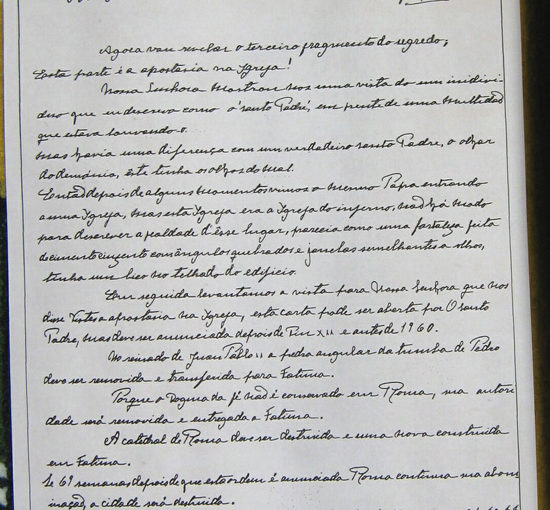 Agora vou revelar o terceiro fragmento do segredo;
Esta parte é a apostasia na Igreja!
Nossa Senhora mostrou nos uma vista do um individ
duo que eu descrevo como o 'santo Padre', em frente de uma multidad
que estava louvando-o.
Mas havia uma diferença com um verdadeiro santo Padre, o olhar
do demónio, éste tinha os olhos do mal.
Entad depois de alguns momentos vimos o mesmo Papa entrando
a uma Igreja, mas esta Igreja era a Igreja do inferno, nad há modo
para descrever a fealdade d'esse lugar, parecia como uma fortaleza feita
de cimento cinzento com ângulos quebrados e janelas semelhantes a olhos,
tinha um bico no telhado do edificio.
Em seguida levantamos a vista para Nossa Senhora que nos
disse Vistes a apostasia na Igreja, esta carta pode ser aberta por O santo
Padre, mas deve ser anunciada depois de Pio XII e antes de 1960.
No reinado de Juan Pablo II a pedra angular da tumba de Pedro
deve ser removida e transferida para Fatima.
Porque o dogma da fé nad é conservado em Roma, sua autori
dade será removida e entregada a Fatima.
A catedral de Roma deve ser destruida e uma nova construida
em Fatima.
Se 69 semanas depois de que esta ordem é anunciada Roma continua sua abom
inaçad, a cidade será destruida.